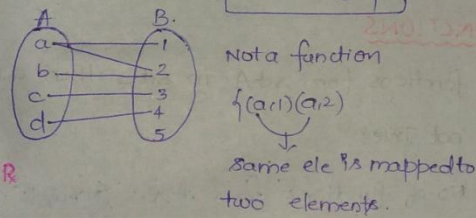 A B.
a 1
b 2
c 3
d 4
5
Not a function
{(a,1)(a,2)
same ele is mapped to
two elements.
R